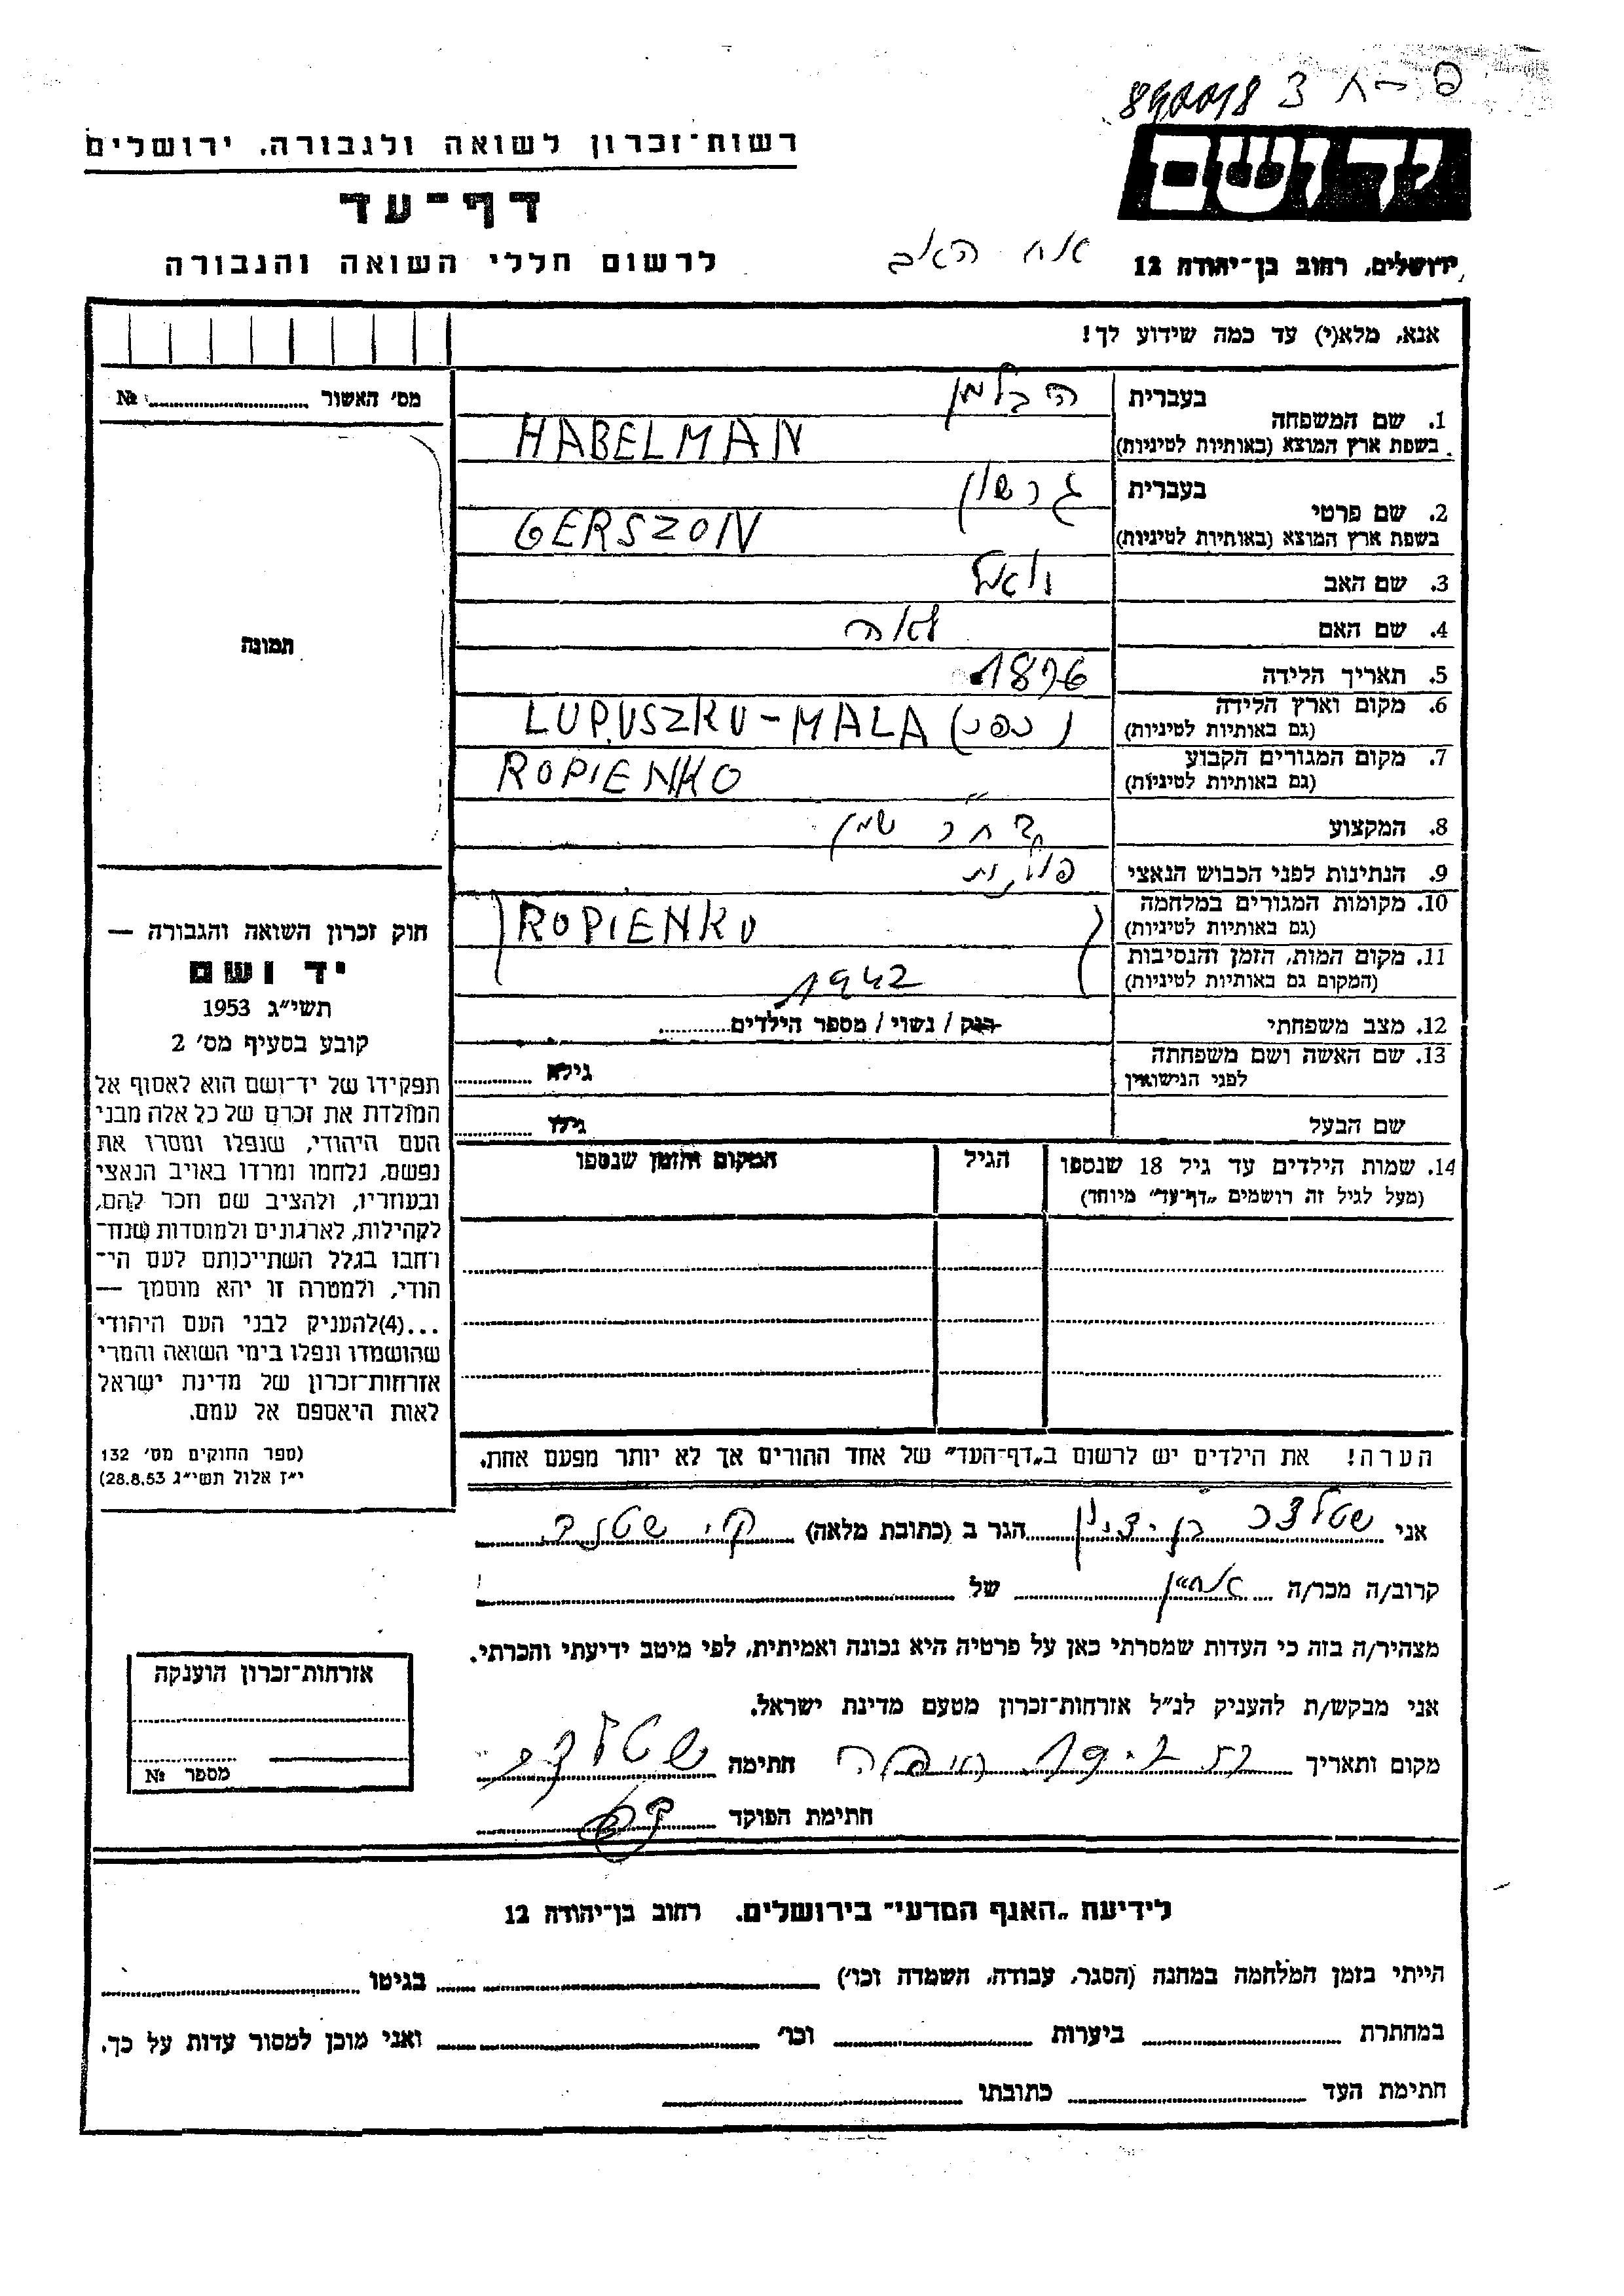 890018
רשות־זכרון לשואה ולגבורה, ירושלים
יד ושם
דף־עד
לרשום חללי השואה והגבורה
אח האב
ירושלים, רחוב בן־יהודה 12
אנא, מלא(י) עד כמה שידוע לך!
מס׳ האשור № ..........
1. שם המשפחה
בעברית הבלמן
בשפת ארץ המוצא (באותיות לטיניות) HABELMAN
2. שם פרטי
בעברית גרשון
בשפת ארץ המוצא (באותיות לטיניות) GERSZON
3. שם האב
4. שם האם לאה
5. תאריך הלידה 1896
6. מקום וארץ הלידה
(גם באותיות לטיניות) LUPUSZKU-MALA
7. מקום המגורים הקבוע
(גם באותיות לטיניות) ROPIENKO
8. המקצוע שמן
9. הנתינות לפני הכבוש הנאצי
10. מקומות המגורים במלחמה
(גם באותיות לטיניות) ROPIENKU
11. מקום המות, הזמן והנסיבות
(המקום גם באותיות לטיניות) 1942
12. מצב משפחתי רוק / נשוי / מספר הילדים..........
13. שם האשה ושם משפחתה
לפני הנישואין גילה ..........
שם הבעל גילו ..........
14. שמות הילדים עד גיל 18 שנספו
(מעל לגיל זה רושמים „דף־עד״ מיוחד)
הגיל
המקום והזמן שנספו
תמונה
חוק זכרון השואה והגבורה —
יד ושם
תשי״ג 1953
קובע בסעיף מס׳ 2
תפקידו של יד־ושם הוא לאסוף אל
המולדת את זכרם של כל אלה מבני
העם היהודי, שנפלו ומסרו את
נפשם, נלחמו ומרדו באויב הנאצי
ובעוזריו, ולהציב שם וזכר להם,
לקהילות, לארגונים ולמוסדות שנח־
רחבו בגלל השתייכותם לעם הי־
הודי, ולמטרה זו יהא מוסמך —
...(4)להעניק לבני העם היהודי
שהושמדו ונפלו בימי השואה והמרי
אזרחות־זכרון של מדינת ישראל
לאות היאספם אל עמם.
(ספר החוקים מס׳ 132
י״ז אלול תשי״ג 28.8.53)
הערה! את הילדים יש לרשום ב„דף־העד״ של אחד ההורים אך לא יותר מפעם אחת.
אני שטלצר בן־ציון הגר ב (כתובת מלאה) ק׳
קרוב/ה מכר/ה אחיין של ..........
מצהיר/ה בזה כי העדות שמסרתי כאן על פרטיה היא נכונה ואמיתית, לפי מיטב ידיעתי והכרתי.
אני מבקש/ת להעניק לנ״ל אזרחות־זכרון מטעם מדינת ישראל.
מקום ותאריך חתימה
חתימת הפוקד
אזרחות־זכרון הוענקה
מספר №
לידיעת „האגף המדעי״ בירושלים, רחוב בן־יהודה 12
הייתי בזמן המלחמה במחנה (הסגר, עבודה, השמדה וכו׳) .......... בגיטו ..........
במחתרת .......... ביערות .......... וכו׳ .......... ואני מוכן למסור עדות על כך.
חתימת העד .......... כתובתו ..........